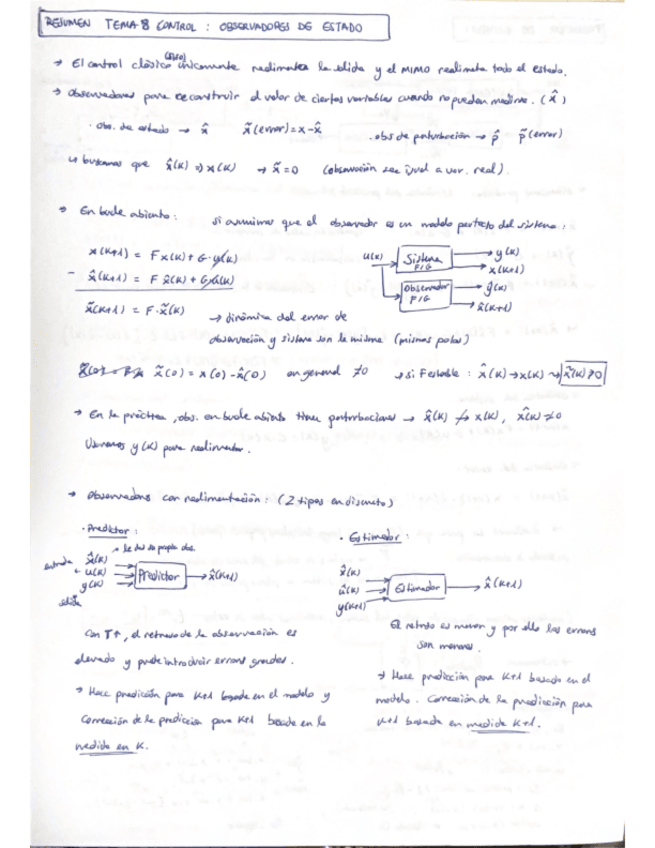 RESUMEN TEMA 8 CONTROL : OBSERVADORES DE ESTADO
→ El control clásico únicamente realimenta la salida y el MIMO realimenta todo el estado.
→ Observadores para reconstruir el valor de ciertas variables cuando no pueden medirse. (x̂)
· obs. de estado → x̂    x̃ (error) = x - x̂    · obs de perturbación → p̂    p̃ (error)
↳ buscamos que x̂(k) → x(k) → x̃ = 0 (observación sea igual a var. real).
→ En bucle abierto: si asumimos que el observador es un modelo perfecto del sistema:
x(k+1) = F x(k) + G·u(k)
- x̂(k+1) = F x̂(k) + G u(k)
x̃(k+1) = F·x̃(k) → dinámica del error de
observación y sistema son la misma (mismos polos)
u(k) Sistema F/G y(k)
x(k+1)
Observador F/G ŷ(k)
x̂(k+1)
x̃(0) = x(0) - x̂(0) en general ≠0 → si F estable : x̂(k) → x(k) → x̃(k) → 0
→ En la práctica, obs. en bucle abierto tiene perturbaciones → x̂(k) ↛ x(k), x̃(k) ↛ 0
Usaremos y(k) para realimentar.
→ Observadores con realimentación: (2 tipos en discreto)
· Predictor :
entrada x̂(k)
u(k)
y(k)
salida
Predictor → x̂(k+1)
Con T↑, el retraso de la observación es
elevado y puede introducir errores grandes.
→ Hace predicción para k+1 basada en el modelo y
Corrección de la predicción para k+1 basada en la
medida en k.
· Estimador :
x̂(k)
u(k)
y(k+1)
Estimador → x̂(k+1)
El retraso es menor y por ello los errores
son menores.
→ Hace predicción para k+1 basada en el
modelo. Corrección de la predicción para
k+1 basada en medida k+1.